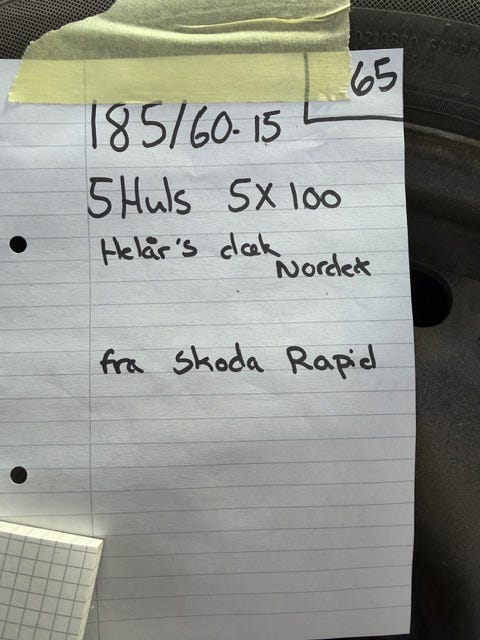 65
185/60-15
5Huls 5X100
Helår's dæk
Nordex
fra Skoda Rapid